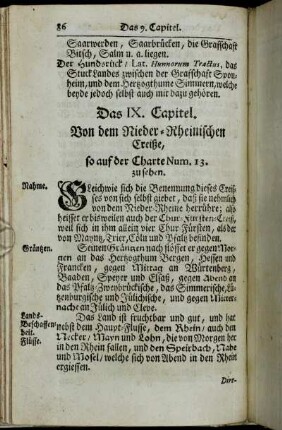 86 Das 9. Capitel.
Saarwerden, Saarbrücken, die Graffschafft
Bitsch, Salm u. a. liegen.
Der Hundsrück / Lat. Hunnorum Tractus, das
Stuck Landes zwischen der Graffschafft Spon-
heim, und dem Hertzogthume Simmern, welche
beyde jedoch selbst auch mit dazu gehören.
Das IX. Capitel.
Von dem Nieder-Rheinischen
Creiße,
so auf der Charte Num. 13.
zu sehen.
Nahme.
Gleichwie sich die Benennung dieses Creis-
ses von sich selbst giebet, daß sie nehmlich
von dem Nieder-Rheine herrühre; also
heisset er bisweilen auch der Chur-Fürsten-Creiß,
weil sich in ihm allein vier Chur Fürsten, als der
von Mayntz, Trier, Cölln und Pfaltz befinden.
Gräntzen.
Seinen Gräntzen nach stösset er gegen Mor-
gen an das Hertzogthum Bergen, Hessen und
Francken, gegen Mittag an Würtenberg,
Baaden, Speyer und Elsaß, gegen Abend an
das Pfaltz-Zweybrückische, das Simmerische, Lü-
tzenburgische und Jülichische, und gegen Mitter-
nacht an Jülich und Cleve.
Lands-
Beschaffen-
heit.
Flüsse.
Das Land ist fruchtbar und gut, und hat
nebst dem Haupt-Flusse, dem Rhein, auch den
Necker, Mayn und Lohn, die von Morgen her
in den Rhein fallen, und den Speirbach, Nahe
und Mosel, welche sich von Abend in den Rhein
ergiessen.
Dire-